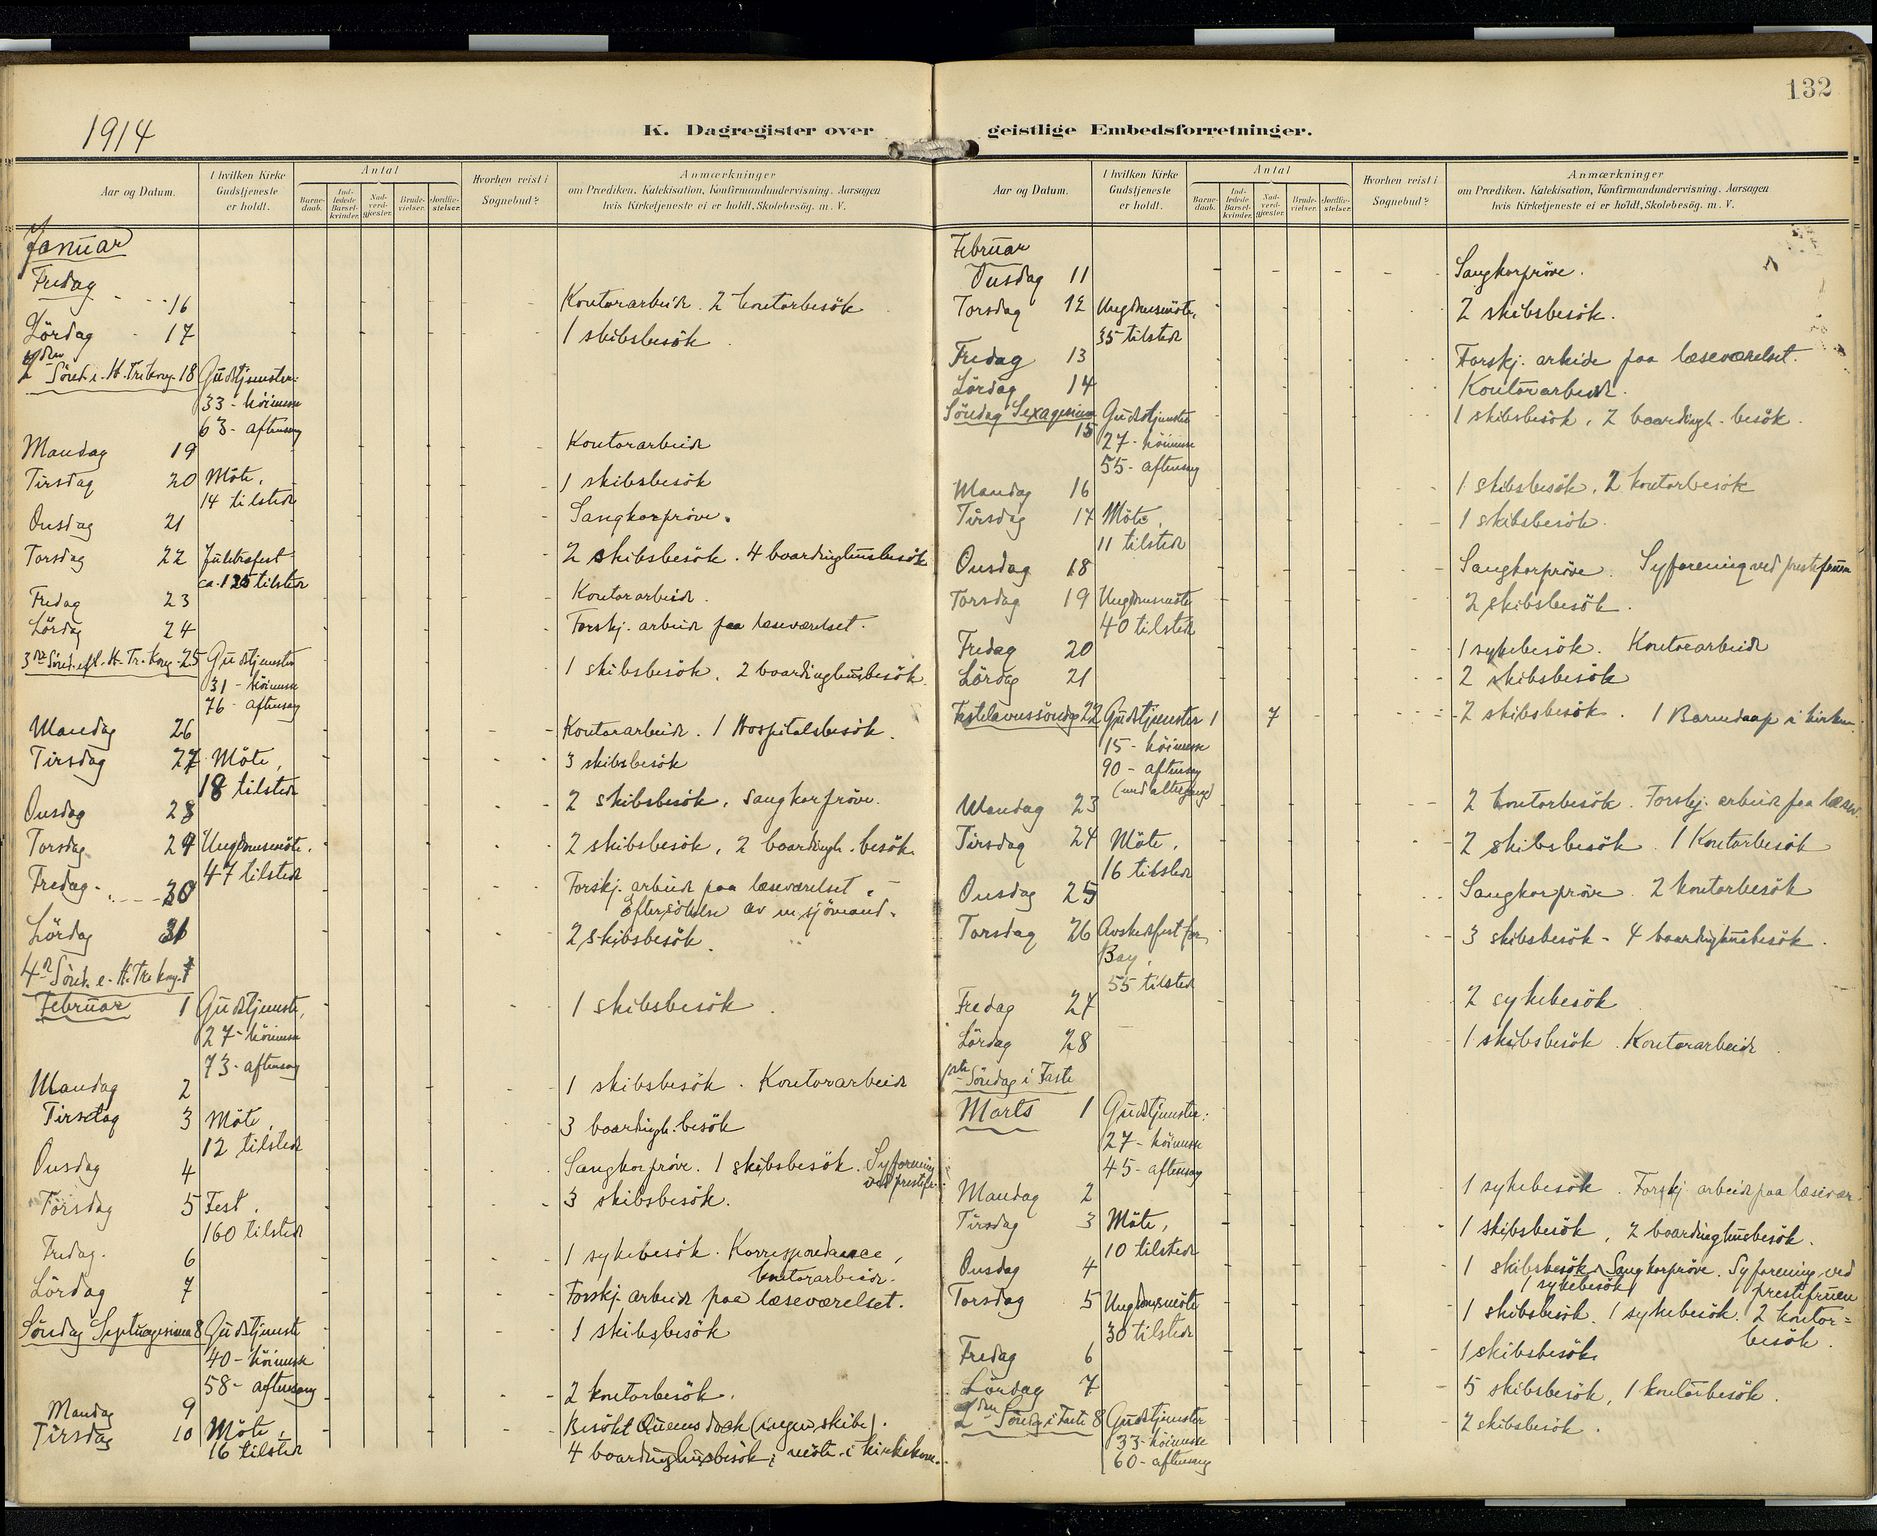 132
1914
K. Dagregister over geistlige Embedsforretninger.
Aar og Datum.
I hvilken Kirke Gudstjeneste er holdt.
Antal
Barne-daab.
Ind-ledede Barsel-kvinder.
Nad-verd-gjester.
Brude-vielser.
Jordfæ-stelser.
Hvorhen reist i Sognebud?
Anmærkninger
om Prædiken, Katekisation, Konfirmandundervisning. Aarsagen
hvis Kirketjeneste ei er holdt, Skolebesög. m. V.
Januar
Fredag 16 Kontorarbeide. 2 kontorbesök
Lördag 17 1 skibsbesök
2den Sönd. e. H. Tre kong. 18 Gudstjenester:
33 - höimesse
63 - aftensang
Mandag 19 Kontorarbeide
Tirsdag 20 Möte, 1 skibsbesök
14 tilstede
Onsdag 21 Sangkorpröve.
Torsdag 22 Juletrefest 2 skibsbesök. 4 boardinghusbesök
ca. 125 tilstede
Fredag 23 Kontorarbeide.
Lördag 24 Forskj. arbeide paa læseværelset.
3die Sönd. eft. H. Tr. kong. 25 Gudstjenester 1 skibsbesök, 2 boardinghusbesök
31 - höimesse
76 - aftensang
Mandag 26 Kontorarbeide. 1 Hospitalsbesök.
Tirsdag 27 Möte, 3 skibsbesök
18 tilstede
Onsdag 28 2 skibsbesök, sangkorpröve.
Torsdag 29 Ungdomsmöte. 2 skibsbesök, 2 boardingh. besök.
47 tilstede
Fredag 30 Forskj. arbeide paa læseværelset.
Eftersökelse av en sjömand.
Lördag 31 2 skibsbesök.
4de Sönd. e. H. Tre kong.
Februar 1 Gudstjeneste, 1 skibsbesök
27 - höimesse
73 - aftensang
Mandag 2 1 skibsbesök. Kontorarbeide
Tirsdag 3 Möte, 3 boardingh. besök
12 tilstede
Onsdag 4 Sangkorpröve. 1 skibsbesök. Syforening
ved prestefr.
Torsdag 5 Fest, 3 skibsbesök.
160 tilstede
Fredag. 6 1 sykebesök. Korrespondance,
kontorarbeide.
Lördag 7 Forskj. arbeide paa læseværelset.
Söndag Septuagesima 8 Gudstjeneste 1 skibsbesök
40 - höimesse
58 - aftensang
Mandag 9 2 kontorbesök.
Tirsdag 10 Möte, Besökt Queens dock (ingen skibe).
16 tilstede 4 boardinghusbesök; möte i kirkekom.
Aar og Datum.
I hvilken Kirke Gudstjeneste er holdt.
Antal
Barne-daab.
Ind-ledede Barsel-kvinder.
Nad-verd-gjester.
Brude-vielser.
Jordfæ-stelser.
Hvorhen reist i Sognebud?
Anmærkninger
om Prædiken, Katekisation, Konfirmandundervisning. Aarsagen
hvis Kirketjeneste ei er holdt, Skolebesög. m. V.
Februar
Onsdag 11 Sangkorpröve.
Torsdag 12 Ungdomsmöte, 2 skibsbesök.
35 tilstede
Fredag 13 Forskj. arbeide paa læseværelset.
Lördag 14 Kontorarbeide.
Söndag Sexagesima 15 Gudstjenester 1 skibsbesök, 2 boardingh. besök.
27 - höimesse
55 - aftensang
Mandag 16 1 skibsbesök, 2 kontorbesök
Tirsdag 17 Möte, 1 skibsbesök.
11 tilstede
Onsdag 18 Sangkorpröve. Syforening ved prestefruen
Torsdag 19 Ungdomsmöte 2 skibsbesök.
40 tilstede
Fredag 20 1 sykebesök. Kontorarbeide
Lördag 21 2 skibsbesök
Fastelavnssöndag 22 Gudstjenester 1 7 2 skibsbesök. 1 Barnedaap i kirken.
15 - höimesse
90 - aftensang
(med altergang)
Mandag 23 2 kontorbesök. Forskj. arbeide paa læsev.
Tirsdag 24 Möte, 2 skibsbesök. 1 Kontorbesök
16 tilstede
Onsdag 25 Sangkorpröve. 2 kontorbesök
Torsdag 26 Avskedsfest for 3 skibsbesök - 4 boardinghusbesök.
Bay,
55 tilstede
Fredag 27 2 sykebesök
Lördag 28 1 skibsbesök. Kontorarbeide.
1ste Söndag i Faste
Marts 1 Gudstjenester:
27 - höimesse
45 - aftensang
Mandag 2 1 sykebesök. Forskj. arbeide paa læsevær.
Tirsdag 3 Möte, 1 skibsbesök, 2 boardinghusbesök.
10 tilstede
Onsdag 4 1 skibsbesök. Sangkorpröve. Syforening ved
1 sykebesök prestefruen
Torsdag 5 Ungdomsmöte 1 skibsbesök. 1 sykebesök. 2 kontor=
30 tilstede besök.
Fredag 6 1 skibsbesök
Lördag 7 5 skibsbesök, 1 kontorbesök.
2den Söndag i Faste 8 Gudstjenester 2 skibsbesök.
33 - höimesse
60 - aftensang